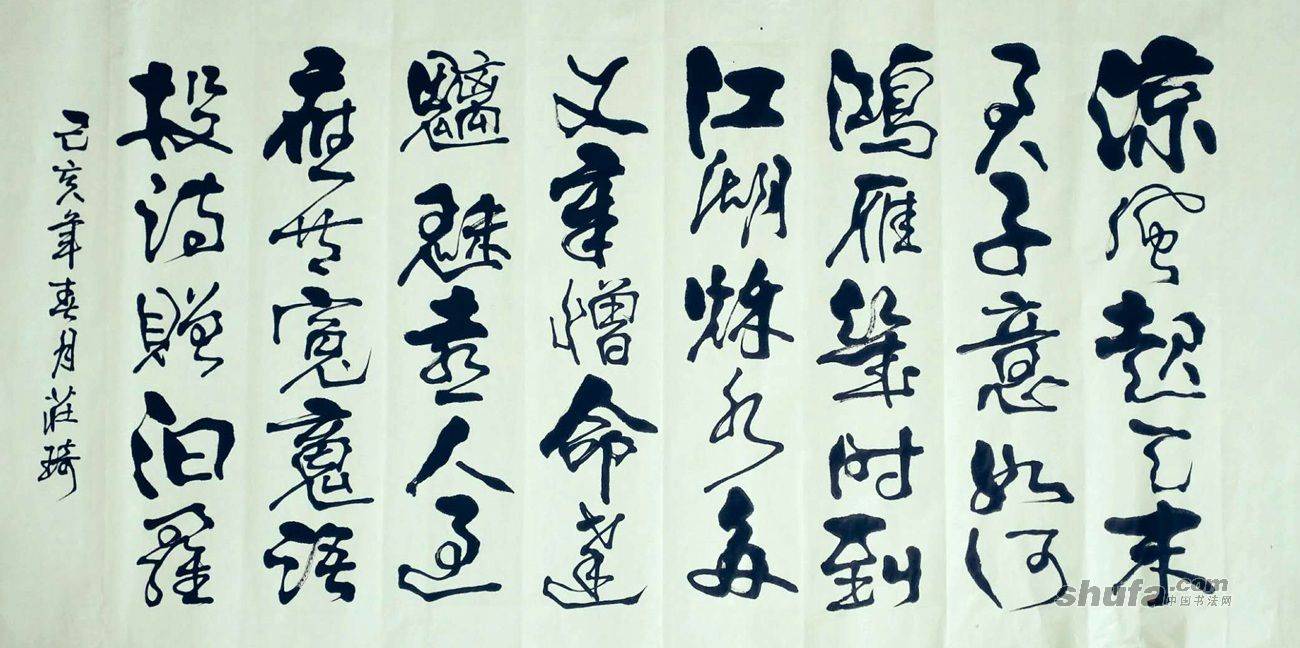 涼風起天末
君子意如何
鴻雁幾时到
江湖秋水多
文章憎命達
魑魅喜人過
應共冤魂語
投詩贈汨羅
己亥年春月莊琦
shufa.com
中国书法网